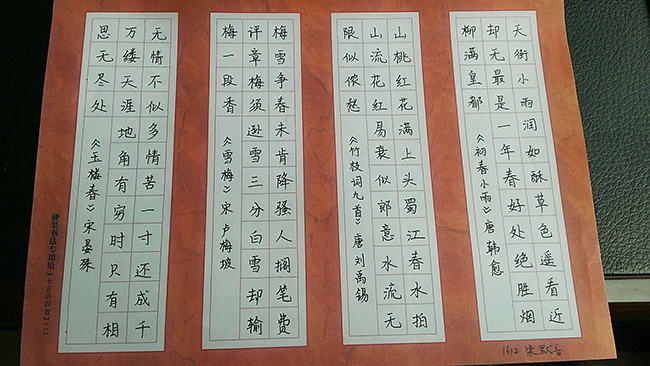 天街小雨润如酥草色遥看近
却无最是一年春好处绝胜烟
柳满皇都《初春小雨》唐 韩愈
山桃红花满上头蜀江春水拍
山流花红易衰似郎意水流无
限似侬愁《竹枝词九首》唐 刘禹锡
梅雪争春未肯降强人搁笔费
评章梅须逊雪三分白雪却输
梅一段香《雪梅》宋 卢梅坡
无情不似多情苦一寸还成千
万缕天涯地角有穷时只有相
思无尽处《玉楼春》宋 晏殊
硬笔书法专用纸
1612